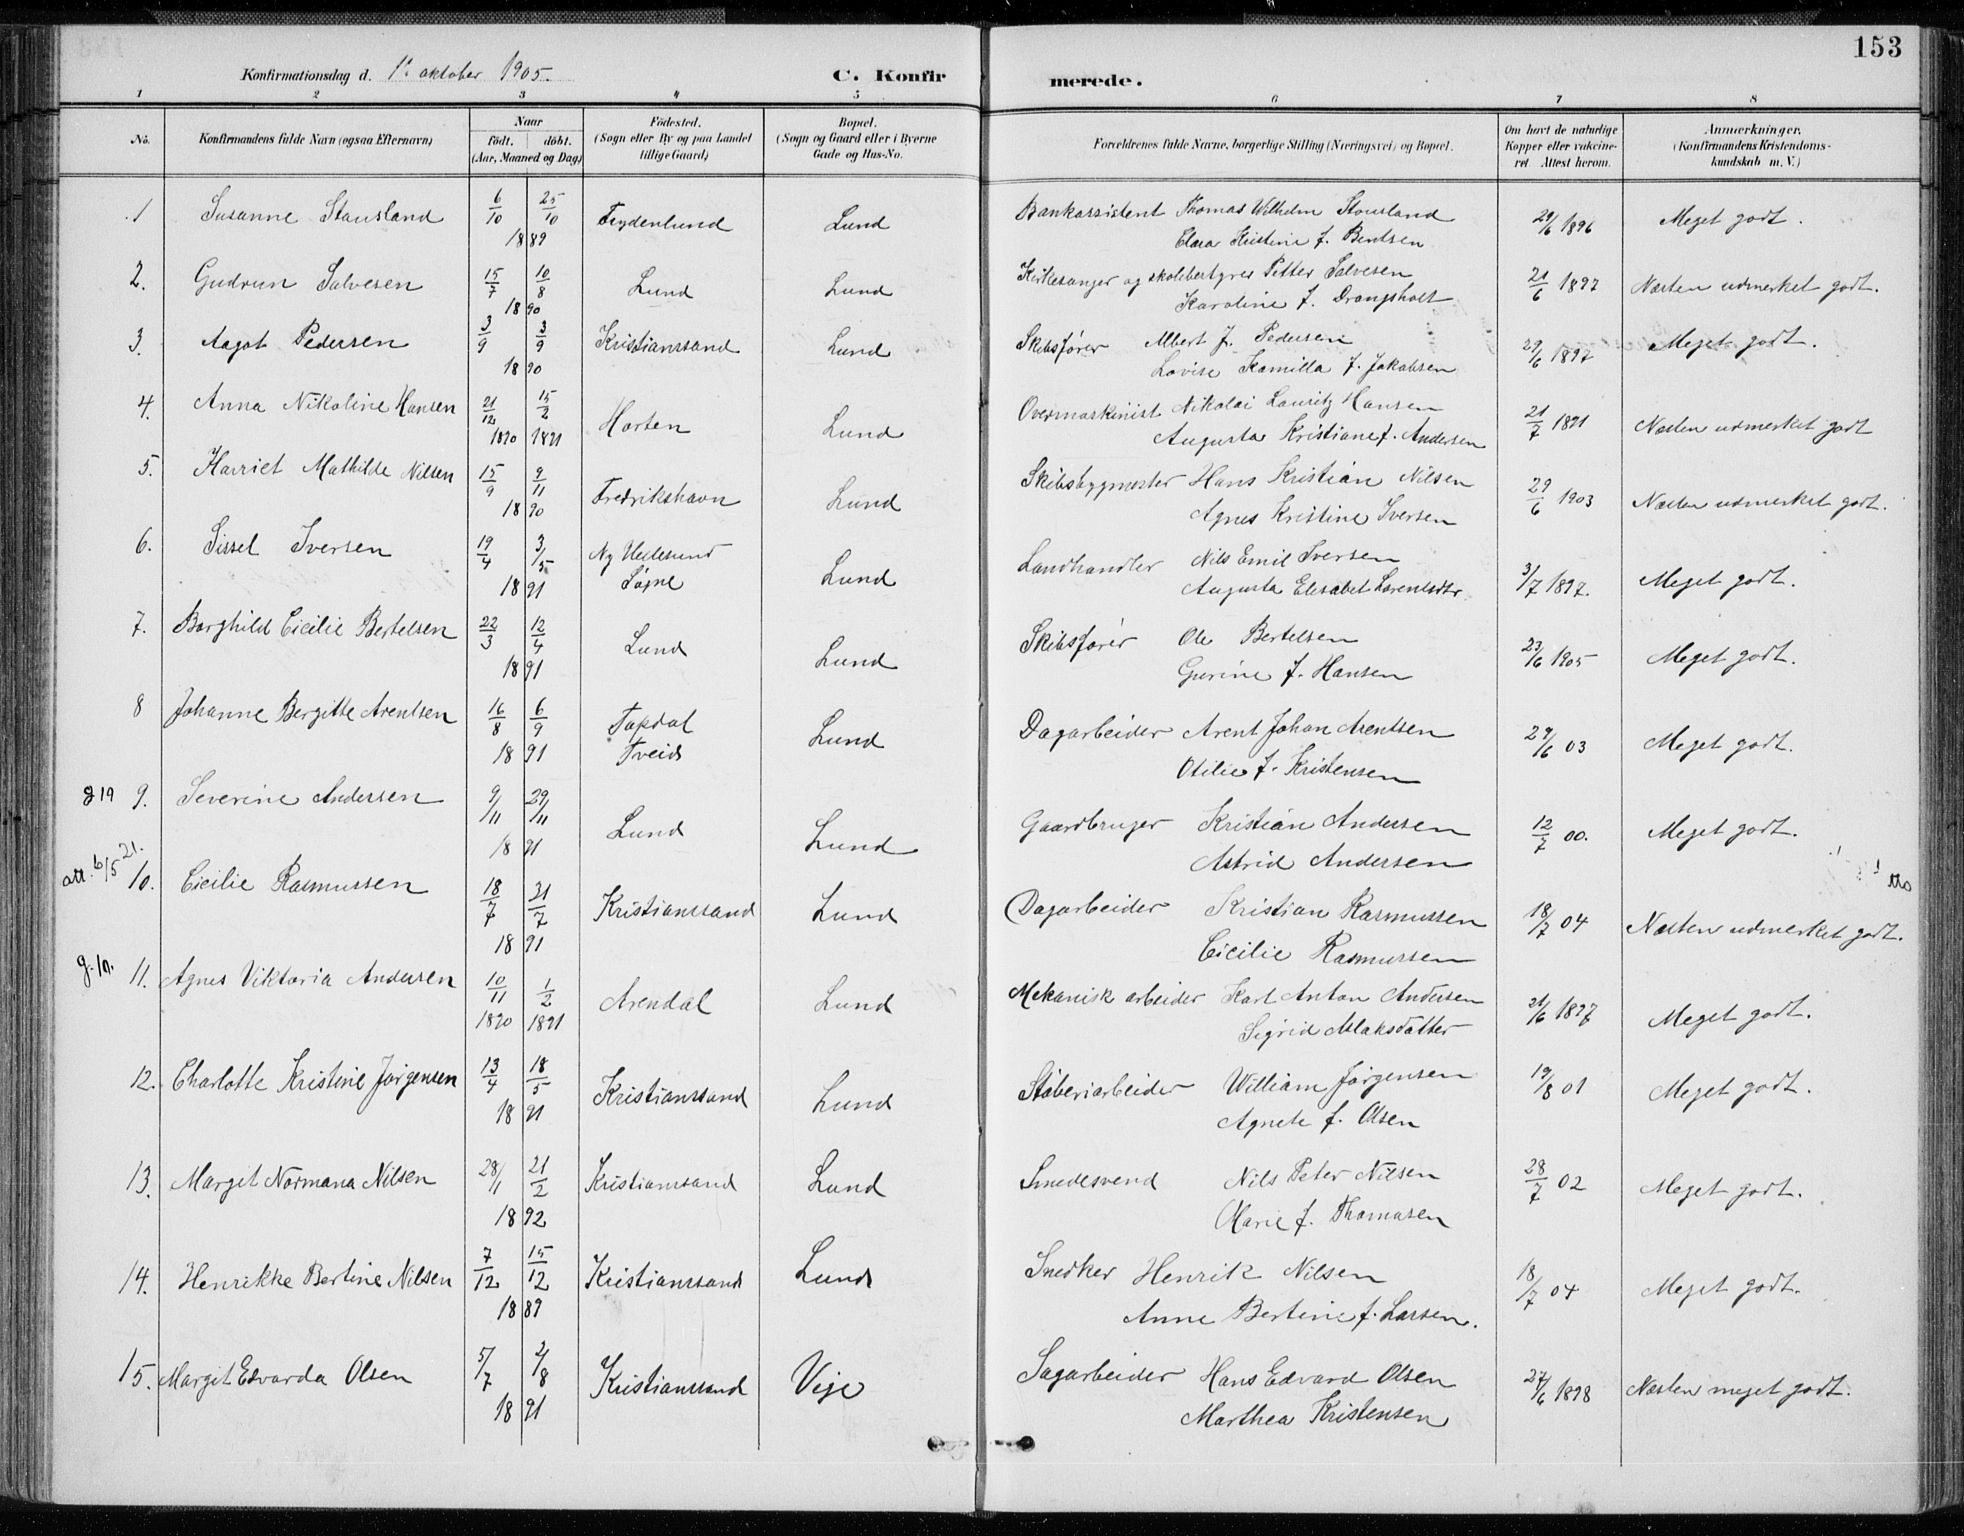 153
Konfirmationsdag d. 1ᵉ oktober 1905.
C. Konfirmerede.
1 2 3 4 5 6 7 8
No.
Konfirmandens fulde Navn (ogsaa Efternavn)
Naar
født. døbt.
(Aar, Maaned og Dag)
Fødested.
(Sogn eller By og paa Landet
tillige Gaard)
Bopæl.
(Sogn og Gaard eller i Byerne
Gade og Hus-No.
Forældrenes fulde Navne, borgerlige Stilling (Næringsvei) og Bopæl.
Om havt de naturlige
Kopper eller vakcine-
ret Attest herom.
Anmærkninger.
(Konfirmandens Kristendoms-
kundskab m. V.)
1 Susanne Stausland 6/10 25/10 1889 Frydenlund Lund Bankassistent Thomas Wilhelm Stousland 29/6 1896 Meget godt.
Clara Kristine f. Bentsen
2. Gudrun Salvesen 15/7 10/8 1890 Lund Lund Kirkesanger og skolebestyrer Petter Salvesen 21/6 1897 Næsten udmerket godt.
Karoline f. Drangsholt
3. Aagot Pedersen 3/9 3/9 1890 Kristianssand Lund Skibsfører Albert J. Pedersen 29/6 1897 Meget godt.
Lovise Kamilla f. Jakobsen
4. Anna Nikoline Hansen 21/12 1890 15/2 1891 Horten Lund Overmaskinist Nikolai Lauritz Hansen 21/7 1891 Næsten udmerket godt
Augusta Kristiane f. Andersen
5. Harriet Mathilde Nilsen 15/9 9/11 1890 Fredrikshavn Lund Skibsbygmester Hans Kristian Nilsen 29/6 1903 Næsten udmerket godt.
Agnes Kristine Iversen
6. Sissel Iversen 19/4 3/5 1891 Ny Hellesund Søgne Lund Landhandler Nils Emil Iversen 3/7 1897. Meget godt.
Augusta Elisabet Lorentsdtr.
7. Borghild Cicilie Bertelsen 22/3 12/4 1891 Lund Lund Skibsfører Ole Bertelsen 23/6 1905 Meget godt.
Gurine f. Hansen
8 Johanne Bergitte Arentsen 16/8 6/9 1891 Topdal Tveid Lund Dagarbeider Arent Johan Arentsen 29/6 03 Meget godt.
Otilie f. Kristensen
g 19 9. Severine Andersen 9/11 29/11 1891 Lund Lund Gaardbruger Kristian Andersen 12/7 00. Meget godt.
Astrid Andersen
att. 6/5 21. 10. Cicilie Rasmussen 18/7 31/7 1891 Kristianssand Lund Dagarbeider Kristian Rasmussen 18/7 04 Næsten udmerket godt.
Cicilie Rasmussen
g. 10. 11. Agnes Viktoria Andersen 10/11 1890 1/2 1891 Arendal Lund Mekanisk arbeider Karl Anton Andersen 21/6 1897 Meget godt.
Sigrid Alaksdatter
12. Charlotte Kristine Jørgensen 13/4 18/5 1891 Kristianssand Lund Støberiarbeider William Jørgensen 19/8 01 Meget godt.
Agnete f. Olsen
13. Margit Normana Nilsen 28/1 21/2 1892 Kristianssand Lund Smedesvend Nils Peter Nilsen 28/7 02 Meget godt.
Marie f. Thomasen
14. Henrikke Bertine Nilsen 7/12 15/12 1889 Kristianssand Lund Snedker Henrik Nilsen 18/7 04 Meget godt.
Anne Bertine f. Larsen.
15. Margit Edvarda Olsen 5/7 2/8 1891 Kristianssand Veje Sagarbeider Hans Edvard Olsen 27/6 1898 Næsten meget godt.
Marthea Kristensen